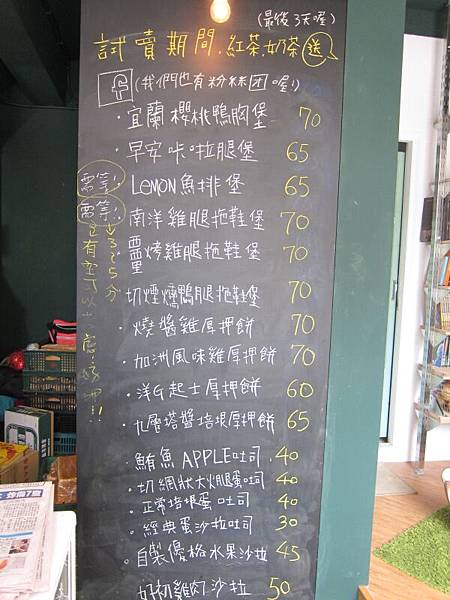 (最後3天喔)
試賣期間.紅茶.奶茶送
f (我們也有粉絲团喔!)
·宜蘭櫻桃鴨胸堡 70
·早安咔啦腿堡 65
需等! ·Lemon魚排堡 65
需等! 南洋雞腿拖鞋堡 70
烤雞腿拖鞋堡 70
切煙燻鴨腿拖鞋堡 70
·燒醬雞厚押餅 70
·加洲風味雞厚押餅 70
·洋G起士厚押餅 60
·九層塔醬培根厚押餅 65
·鮪魚APPLE吐司 40
·切網狀大火腿蛋吐司 40
·正常培根蛋吐司 40
·經典蛋沙拉吐司 30
·自製優格水果沙拉 45
好初雞肉沙拉 50